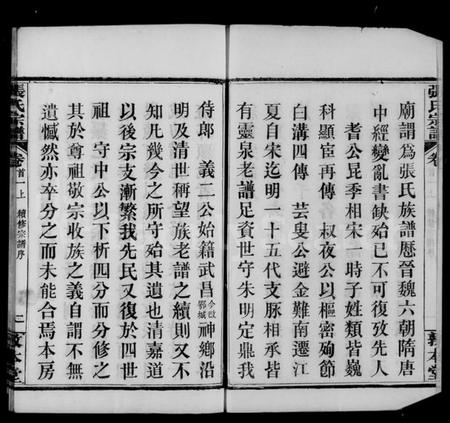 張氏宗譜
卷
敦本堂
廟謂為張氏族譜歷晉魏六朝隋唐
中經變亂書缺始已不可復攷先人
耆公昆季相宋一時子姓類皆巍
科顯宦再傳 叔夜公以樞密殉節
白溝四傳 芸叟公避金難南遷江
夏自宋迄明二十五代支脈相承皆
有靈泉老譜足資世守朱明定鼎我
侍郎 義二公始籍武昌今改鄂城神鄉沿
明及清世稱望族老譜之續則又不
知凡幾今之所守始其遺也清嘉道
以後宗支漸繁我先民又復於四世
祖 守中公以下析四分而分修之
其於尊祖敬宗收族之義自謂不無
遺憾然亦卒分之而未能合焉本房
張氏宗譜
卷首一上 續修宗譜序
二
敦本堂